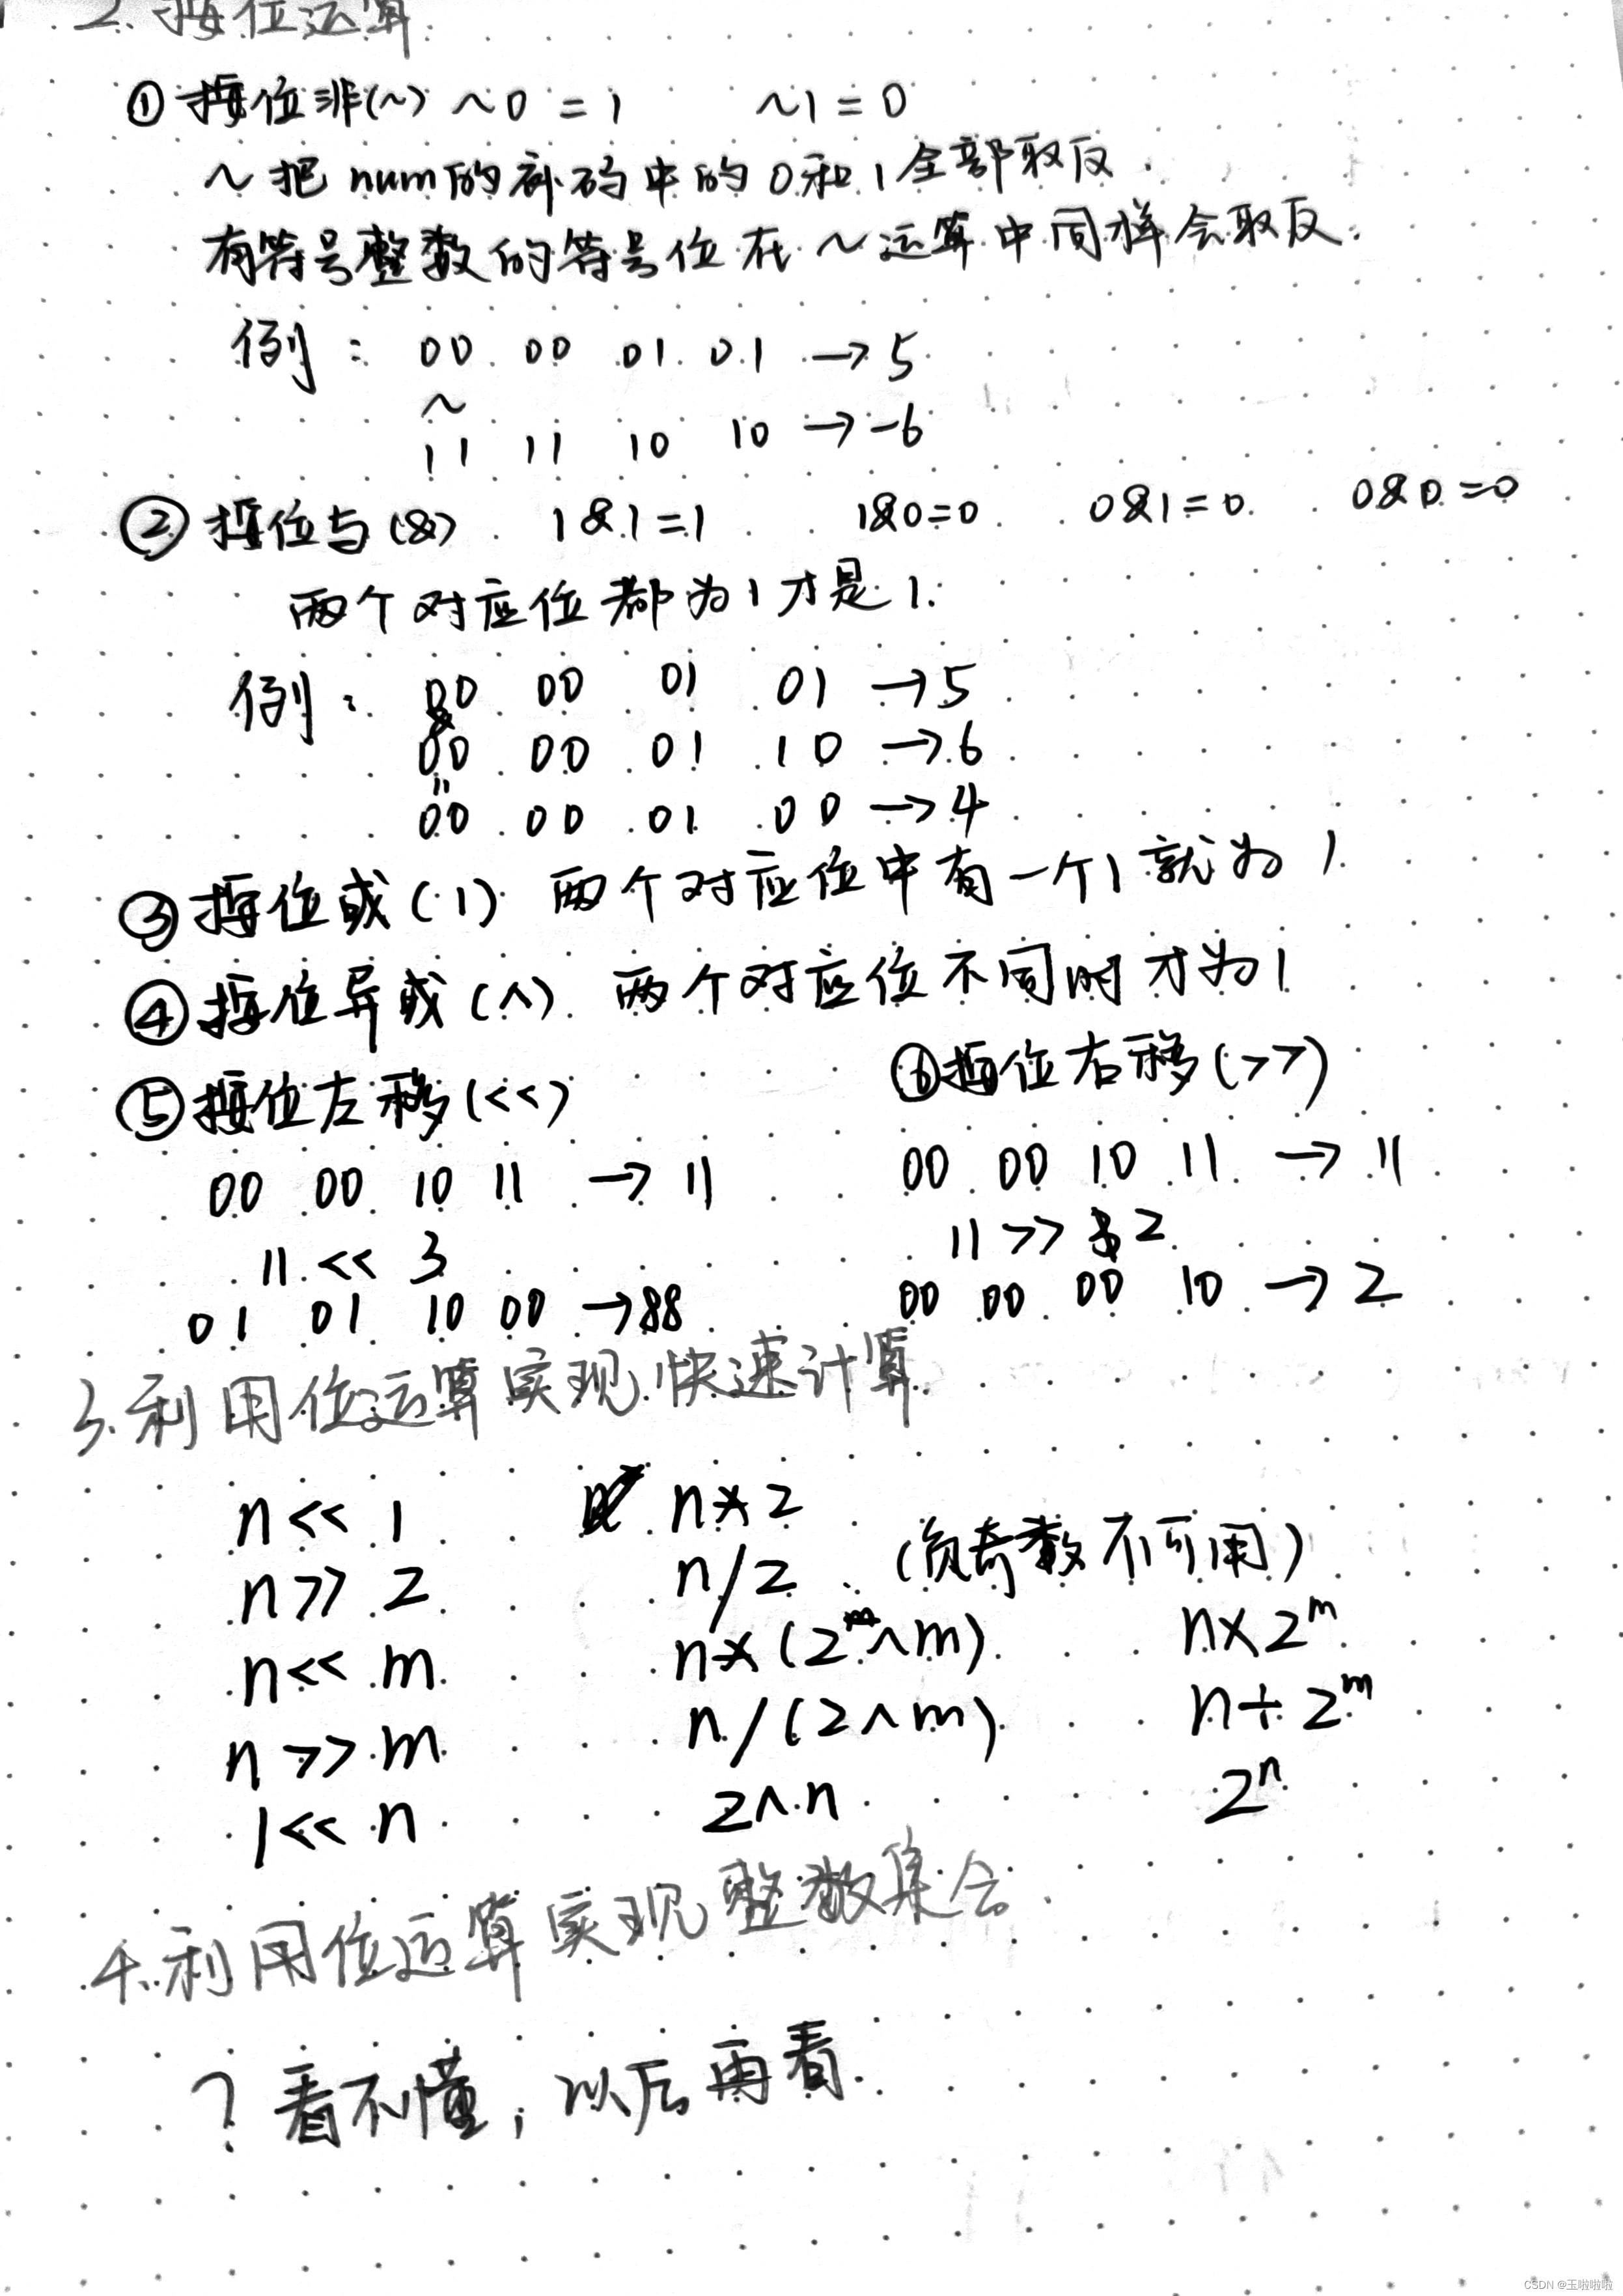 2. 按位运算
① 按位非(~) ~0 = 1 ~1 = 0
~把 num的补码中的0和1全部取反.
有符号整数的符号位在~运算中同样会取反.
例: 00 00 01 01 → 5
~
11 11 10 10 → -6
② 按位与(&) 1&1=1 1&0=0 0&1=0 0&0=0
两个对应位都为1才是1.
例: 00 00 01 01 → 5
&
00 00 01 10 → 6
=
00 00 01 00 → 4
③ 按位或(|) 两个对应位中有一个1就为1
④ 按位异或(^) 两个对应位不同时才为1
⑤ 按位左移(<<)
00 00 10 11 → 11
11 << 3
01 01 10 00 → 88
⑥ 按位右移(>>)
00 00 10 11 → 11
11 >> 2
00 00 00 10 → 2
3.利用位运算实现快速计算
n << 1 n*2
n >> 2 n/2 (负奇数不可用)
n << m n*(2^m) n×2^m
n >> m n/(2^m) n÷2^m
1 << n 2^n 2^n
4.利用位运算实现整数集合
?看不懂,以后再看.
CSDN @王啦啦啦